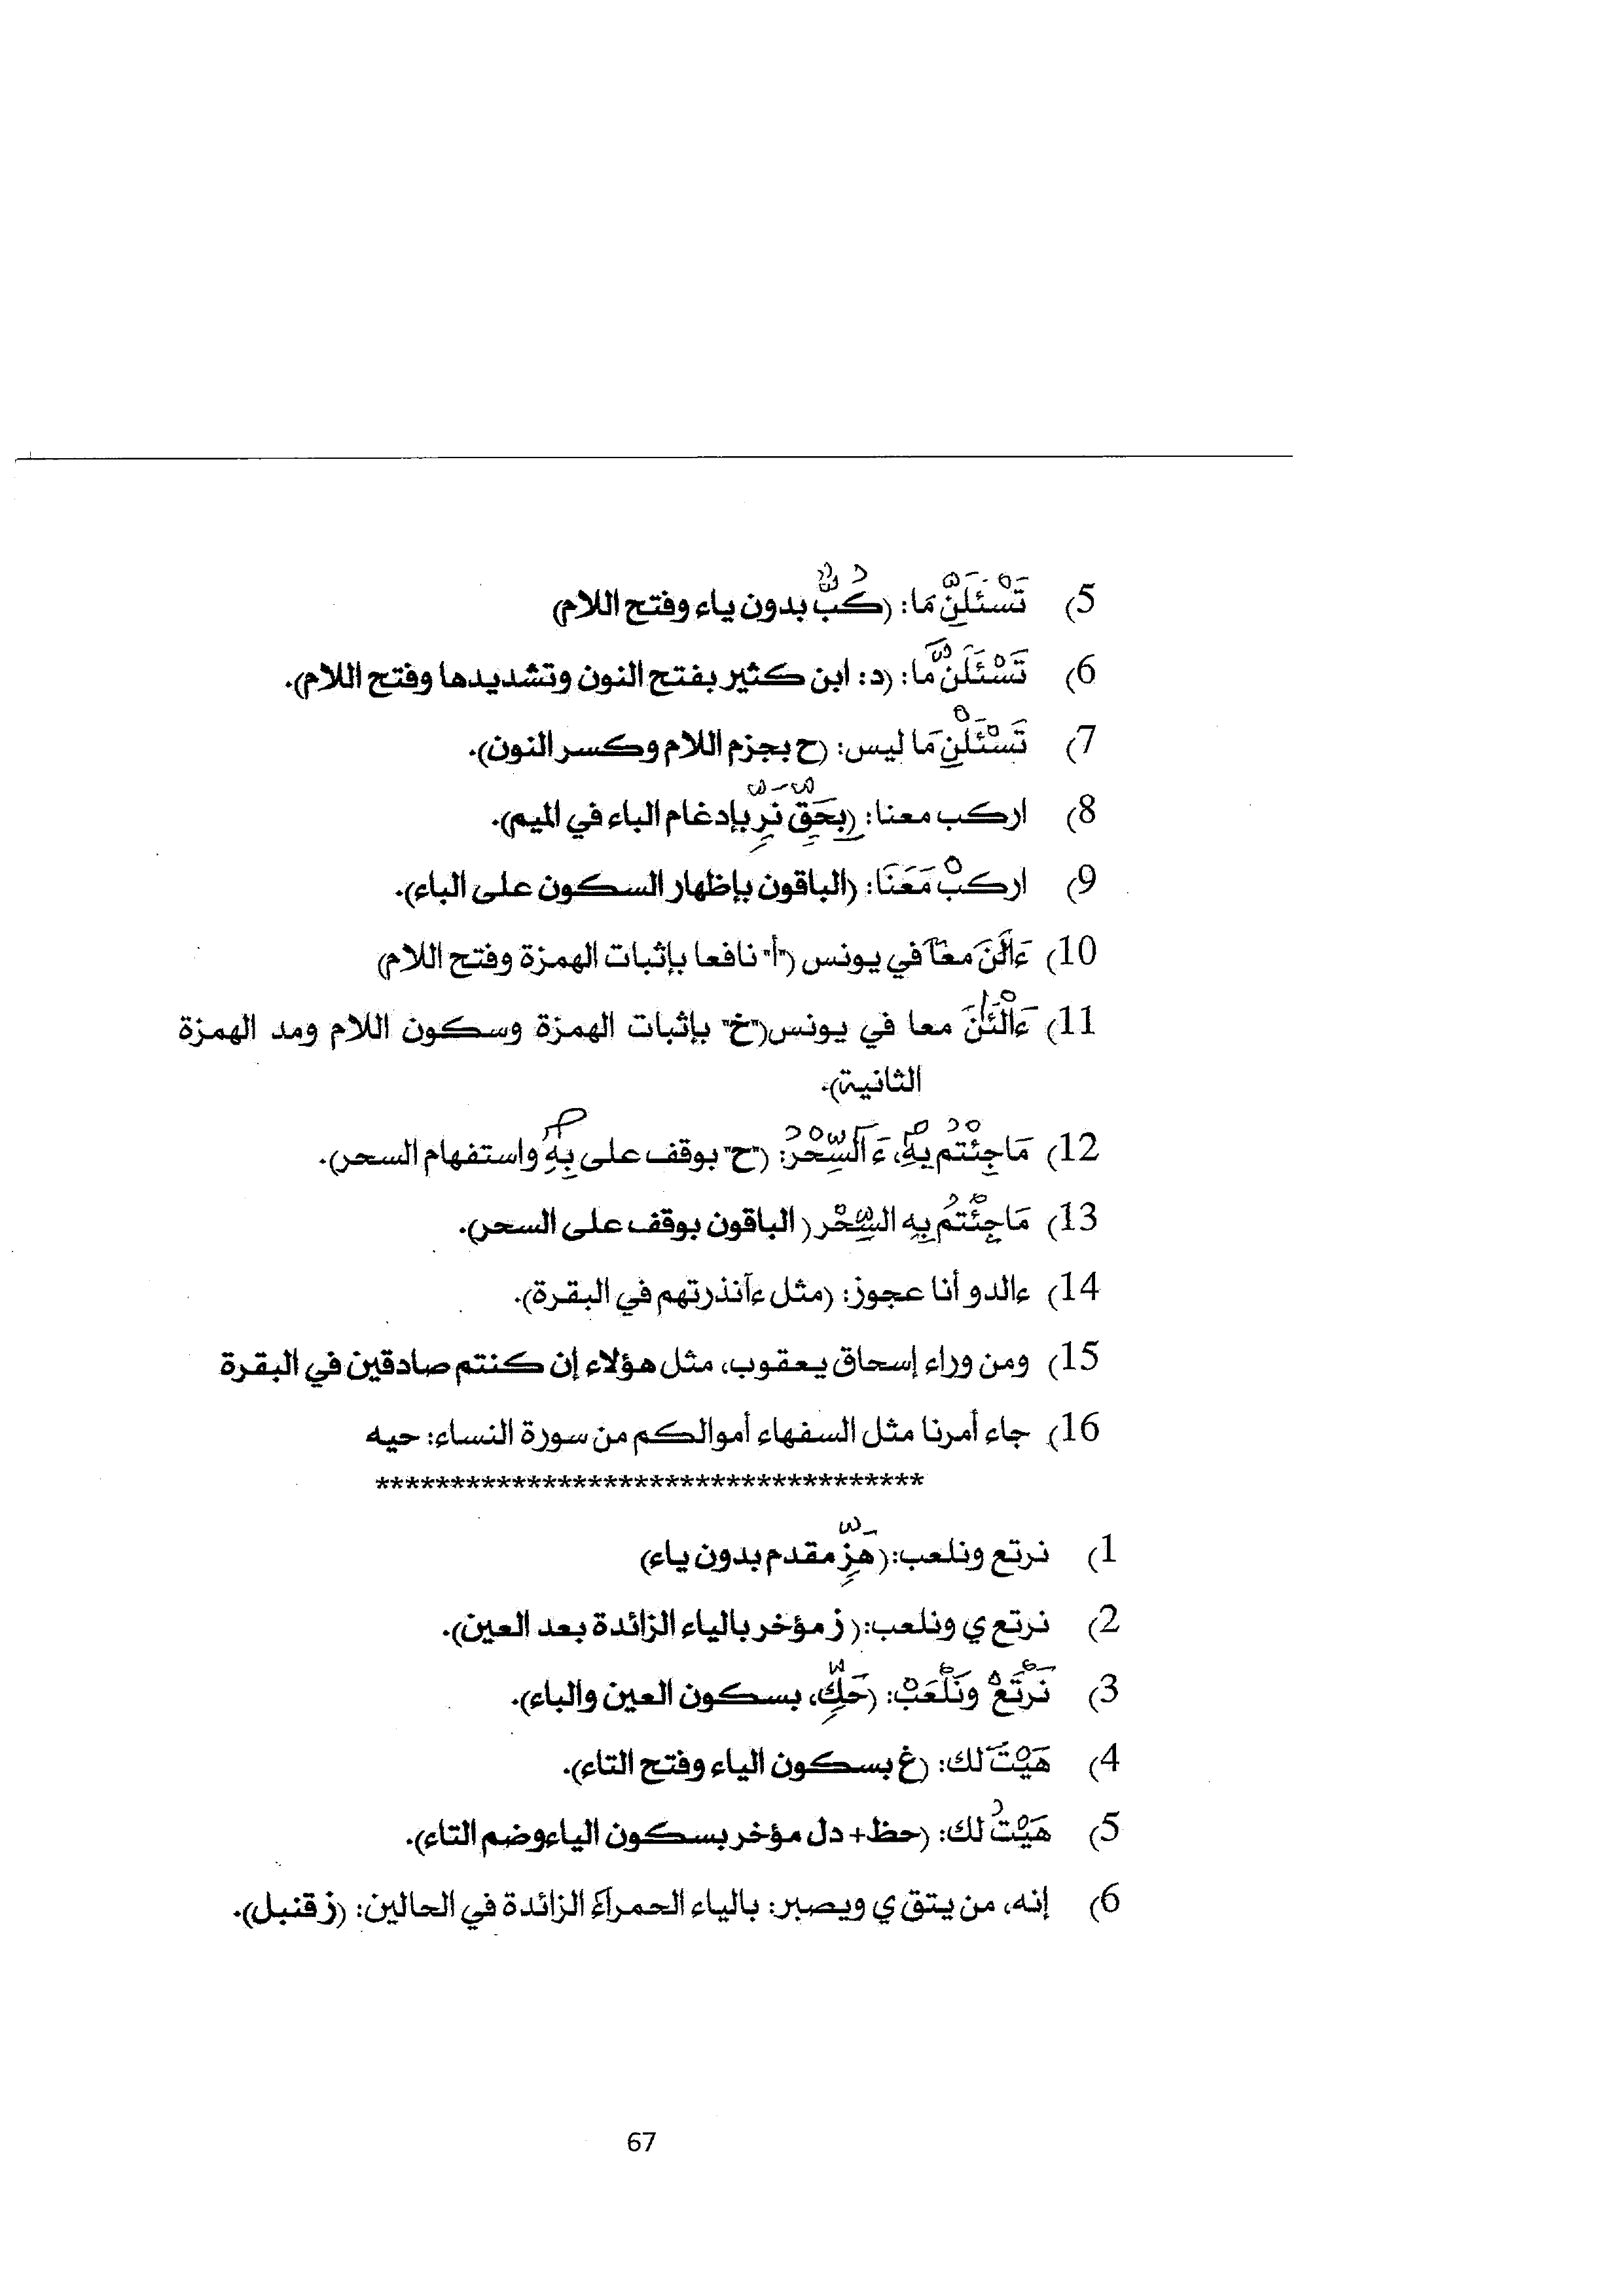 5) تَسْئَلَنِّ مَا: (كُبٌّ بدون ياء وفتح اللام)
6) تَسْئَلَنَّ مَا: (د: ابن كثير بفتح النون وتشديدها وفتح اللام).
7) تَسْئَلْنِ مَا ليس: (ح بجزم اللام وكسر النون).
8) اركب معنا: (بِحَقِّ نَرِ بإدغام الباء في الميم).
9) اركبْ مَعَنَا: (الباقون بإظهار السكون على الباء).
10) ءَالَنَ معا في يونس ("أ" نافعا بإثبات الهمزة وفتح اللام)
11) ءَالْئَنَ معا في يونس("خ" بإثبات الهمزة وسكون اللام ومد الهمزة
الثانية).
12) مَا جِئْتُم بِهِ، ءَآلسِّحْرُ: ("ح" بوقف على بِهِ واستفهام السحر).
13) مَا جِئْتُم بِهِ السِّحْر (الباقون بوقف على السحر).
14) ءالدو أنا عجوز: (مثل ءآنذرتهم في البقرة).
15) ومن وراء إسحاق يعقوب، مثل هؤلاء إن كنتم صادقين في البقرة
16) جاء أمرنا مثل السفهاء أموالكم من سورة النساء: حيه
************************************
1) نرتع ونلعب:(هَزِّ مقدم بدون ياء)
2) نرتع ي ونلعب:(ز مؤخر بالياء الزائدة بعد العين).
3) نَرْتَعْ ونَلْعَبْ: (حَكِّ، بسكون العين والباء).
4) هَيْتَ لك: (غ بسكون الياء وفتح التاء).
5) هَيْتُ لك: (حظ+ دل مؤخر بسكون الياءوضم التاء).
6) إنه، من يتق ي ويصبر: بالياء الحمراء الزائدة في الحالين: (ز قنبل).
67